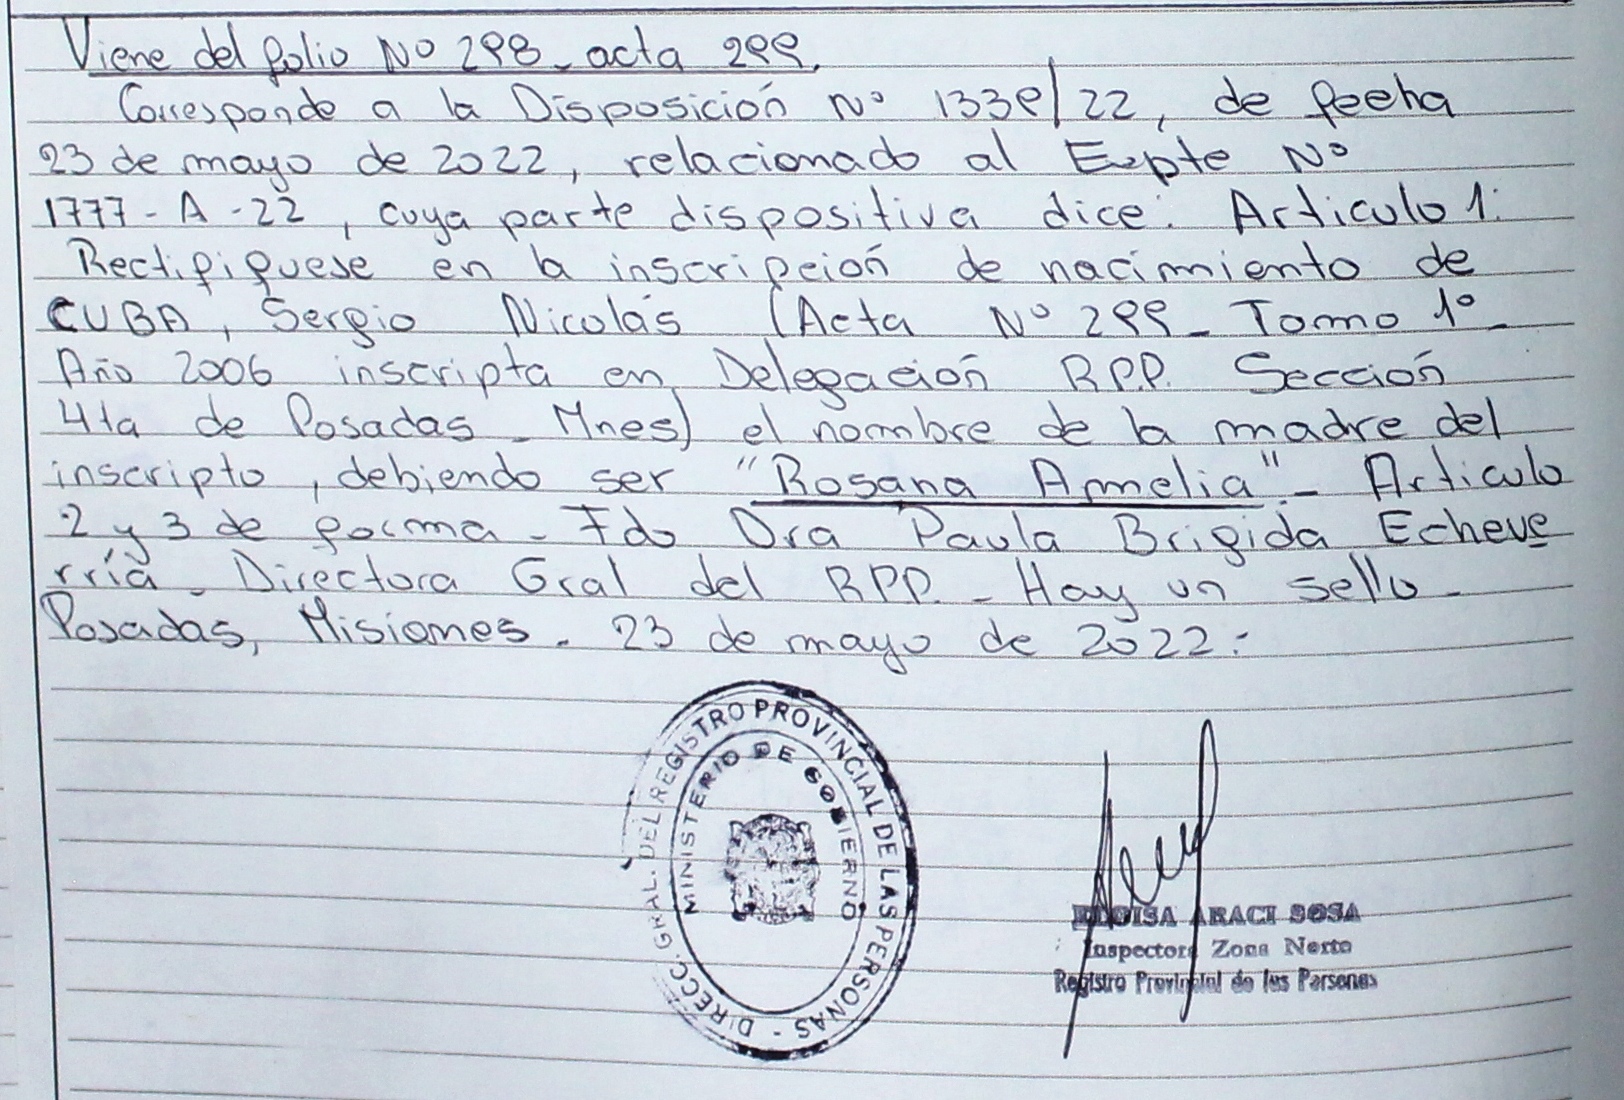 Viene del folio Nº 298 - acta 299.
Corresponde a la Disposición Nº 1339/22, de fecha
23 de mayo de 2022, relacionado al Expte Nº
1777-A-22, cuya parte dispositiva dice: Articulo 1:
Rectifiquese en la inscripción de nacimiento de
CUBA, Sergio Nicolás (Acta Nº 299 - Tomo 1º -
Año 2006 inscripta en Delegación RPP. Sección
4ta de Posadas - Mnes) el nombre de la madre del
inscripto, debiendo ser "Rosana Amelia". - Articulo
2 y 3 de forma - Fdo Dra Paula Brigida Echeve
rría - Directora Gral del RPP. - Hay un sello -
Posadas, Misiones - 23 de mayo de 2022:
DIRECC. GRAL. DEL REGISTRO PROVINCIAL DE LAS PERSONAS -
MINISTERIO DE GOBIERNO
ELOISA ARACI SOSA
Inspectora Zona Norte
Registro Provincial de las Personas